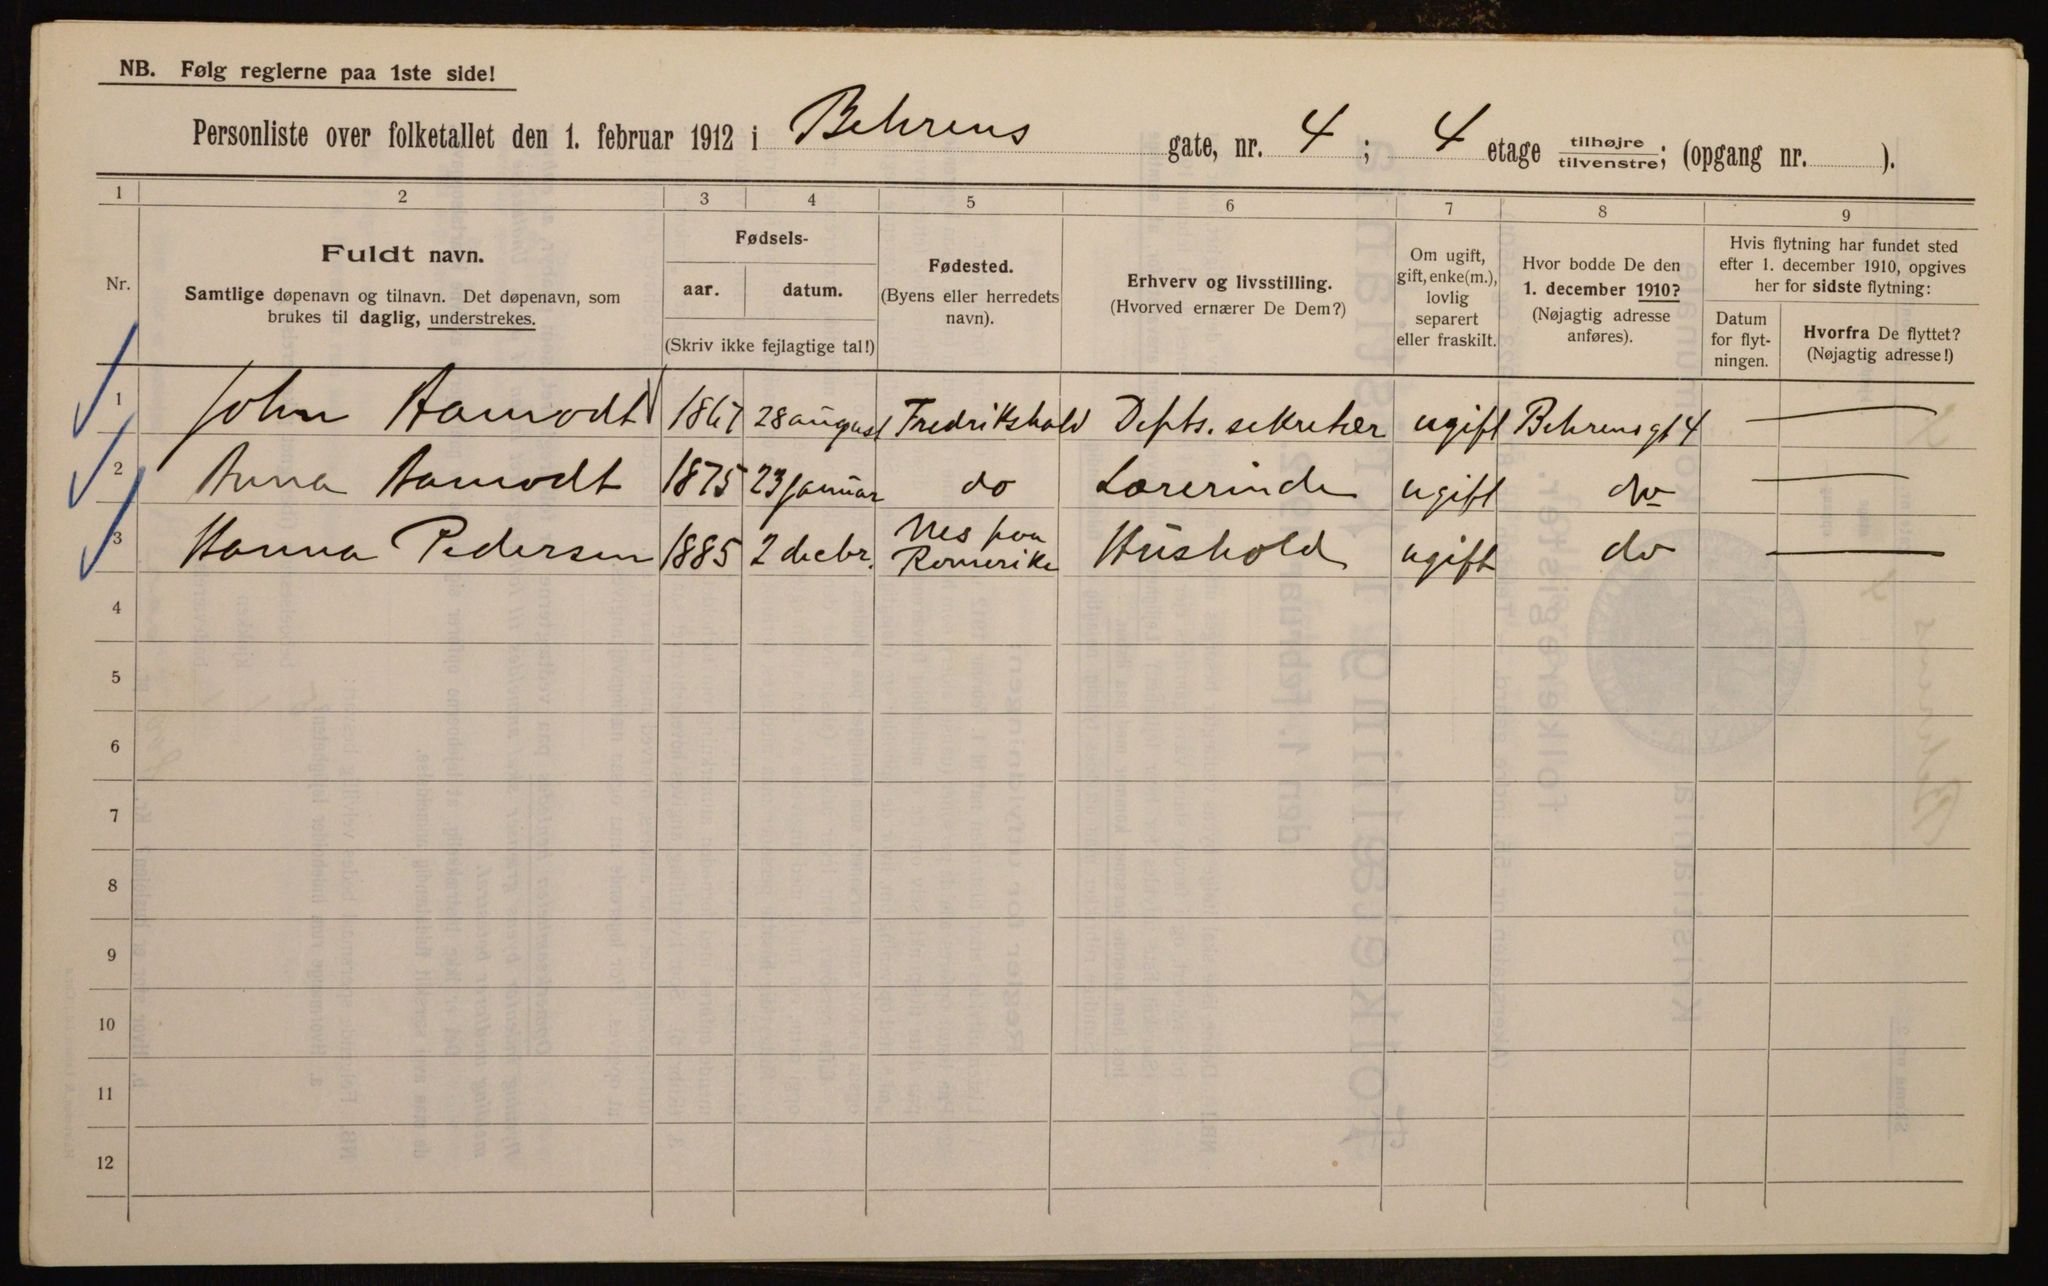 NB. Følg reglerne paa 1ste side!
Personliste over folketallet den 1. februar 1912 i Behrens gate, nr. 4; 4 etage tilhøjre/tilvenstre; (opgang nr. ).
1 2 3 4 5 6 7 8 9
Nr.
Fuldt navn.
Samtlige døpenavn og tilnavn. Det døpenavn, som
brukes til daglig, understrekes.
Fødsels-
aar. datum.
(Skriv ikke fejlagtige tal!)
Fødested.
(Byens eller herredets
navn).
Erhverv og livsstilling.
(Hvorved ernærer De Dem?)
Om ugift,
gift, enke(m.),
lovlig
separert
eller fraskilt.
Hvor bodde De den
1. december 1910?
(Nøjagtig adresse
anføres).
Hvis flytning har fundet sted
efter 1. december 1910, opgives
her for sidste flytning:
Datum
for flyt-
ningen.
Hvorfra De flyttet?
(Nøjagtig adresse!)
1 John Aamodt 1867 28 august Fredrikshald Depts. sekretær ugift Behrensgt 4 —
2 Anna Aamodt 1875 23 januar do Lærerinde ugift do —
3 Hanna Pedersen 1885 2 decbr. Nes paa
Romerike Hushold ugift do —
4
5
6
7
8
9
10
11
12